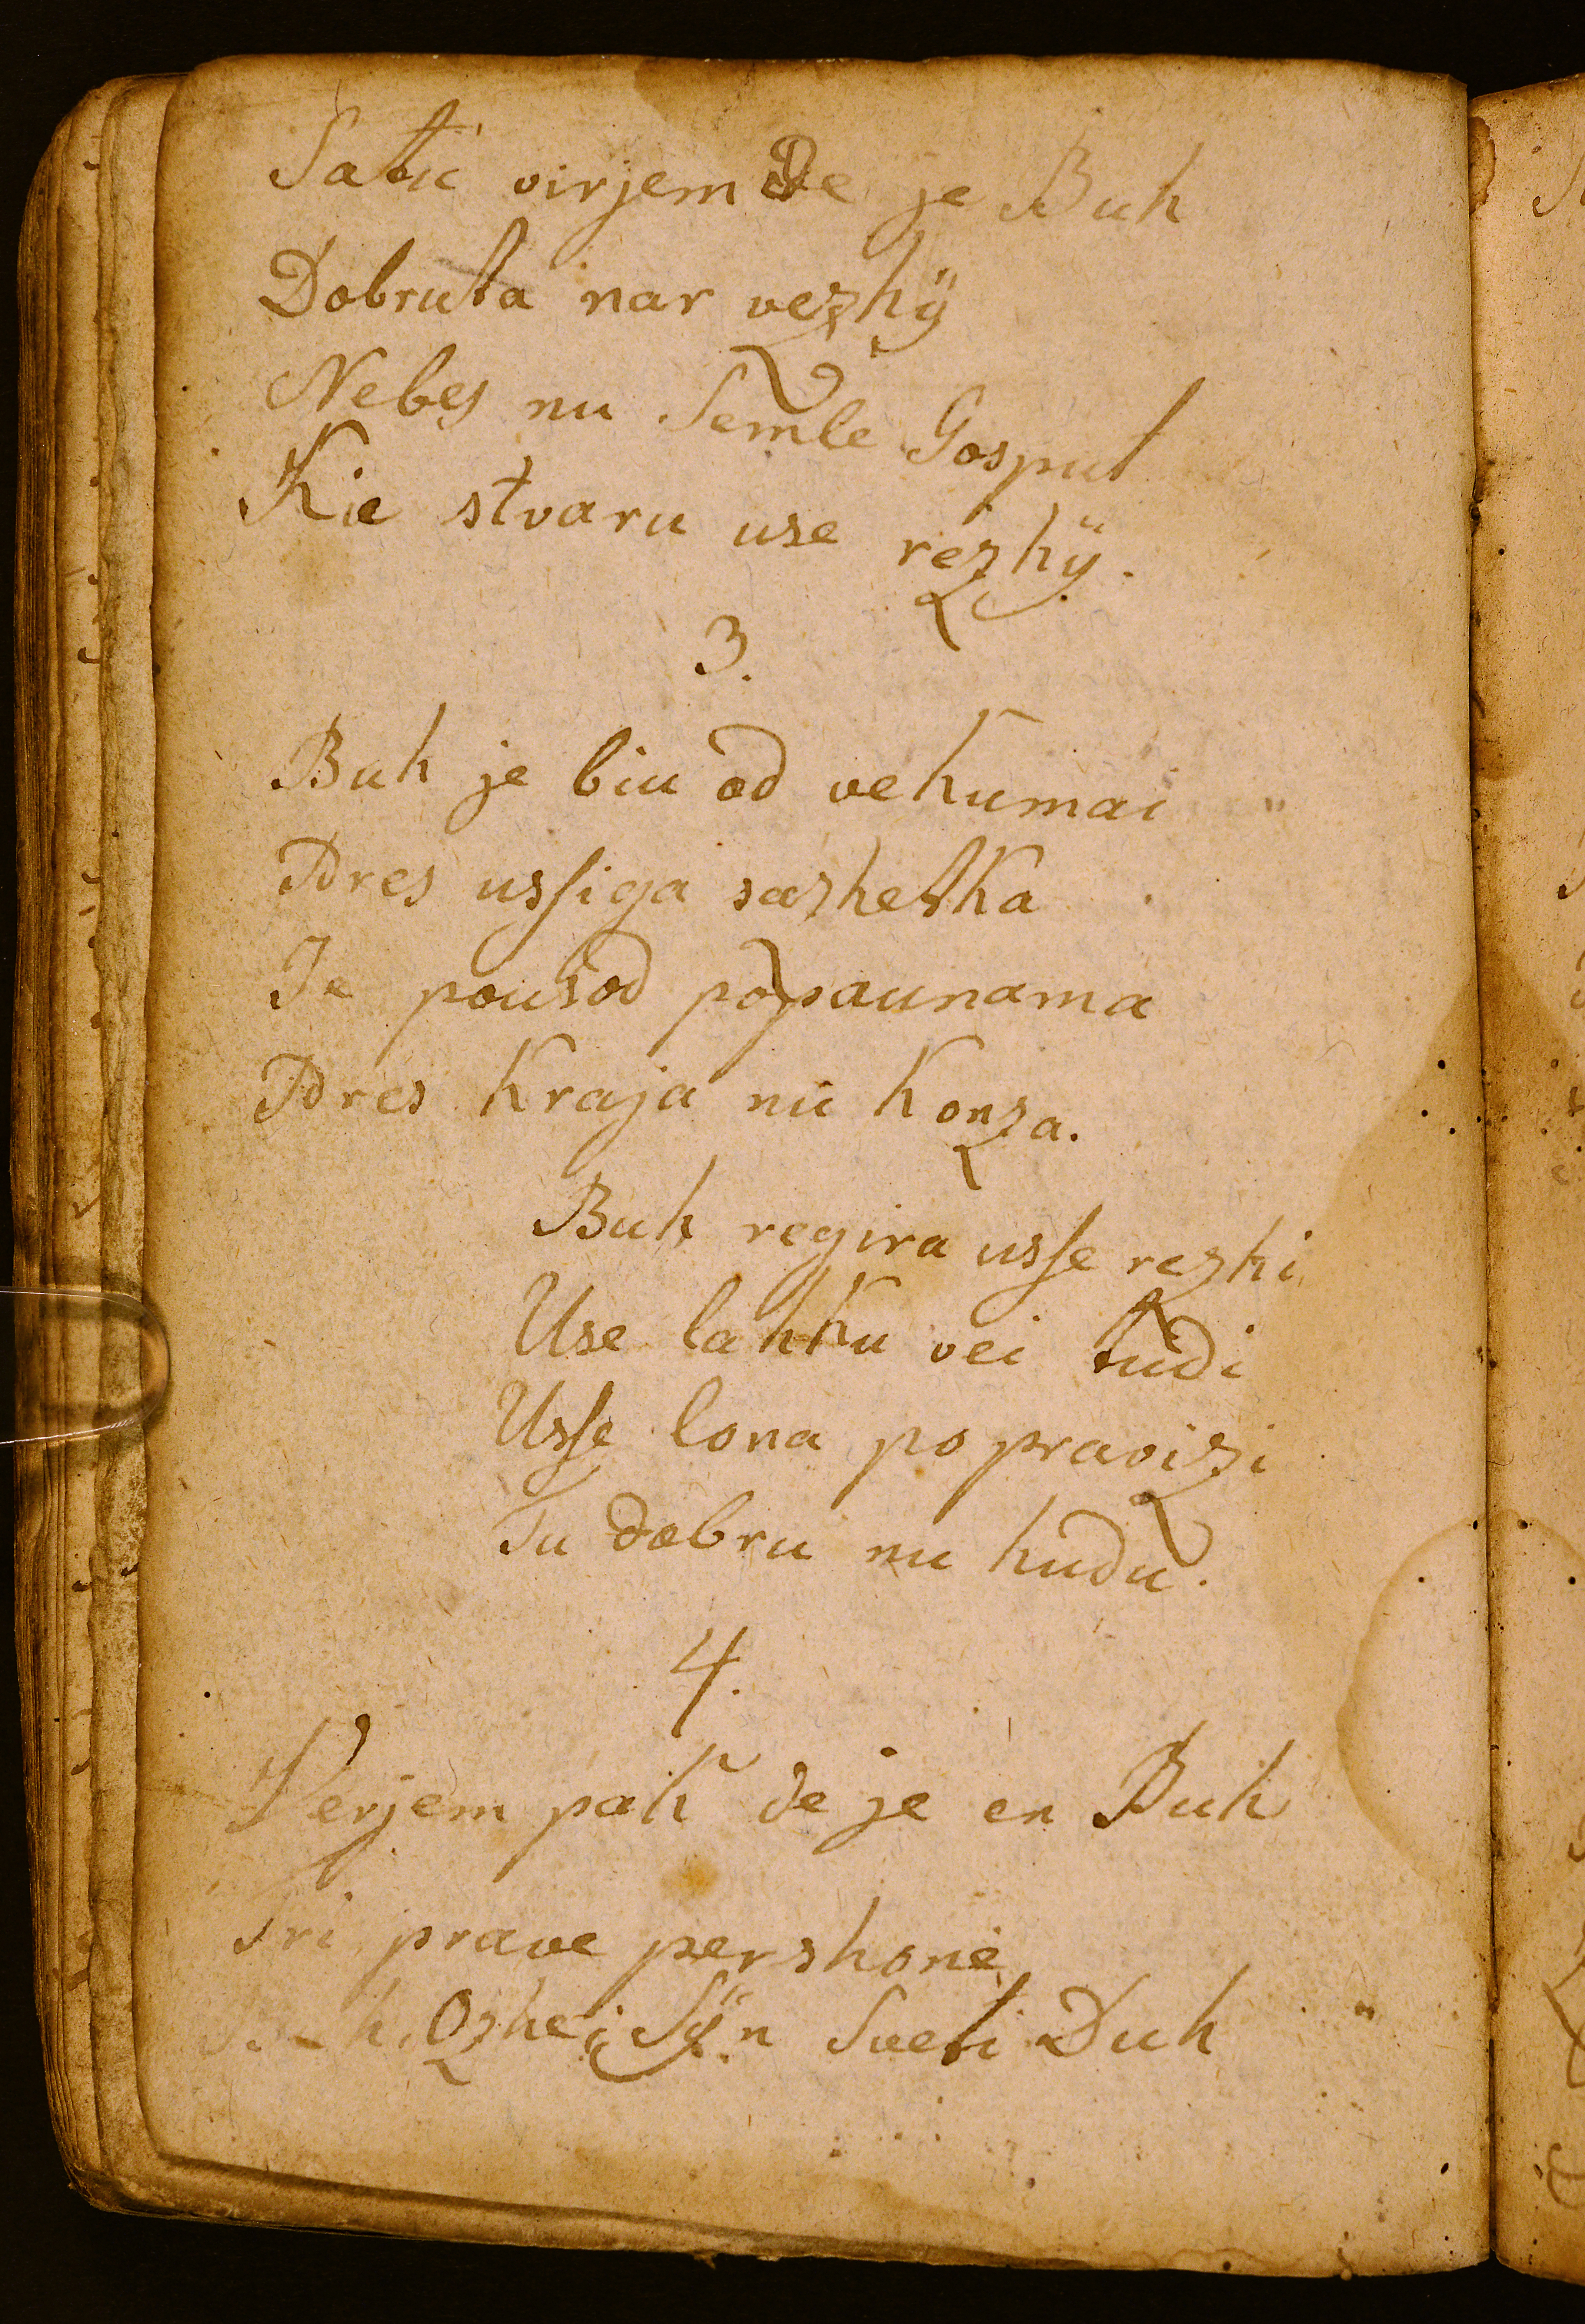 Satu virjem De je Buh
Dobruta nar vezhÿ
Nebes nu Semle Gosput
Kie stvaru use rezhÿ.
3.
Buh je biu od vekumai
Bres ussiga sazhetka
Je pousod popaunama
Bres kraja nu konza.
Buh regira usse rezhi
Use lahku vei tudi
Usse lona po pravizi
Tu dobru nu hudu.
4.
Verjem pak de je en Buh
Tri prave pershone
Ozhe, Sÿn Sveti Duh